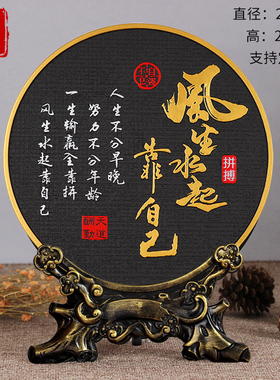 直径：2
高：2
支持
风生水起
靠自己
拼搏
人生不分早晚
努力不分年龄
一生输赢全靠拼
风生水起靠自己
天道
酬勤